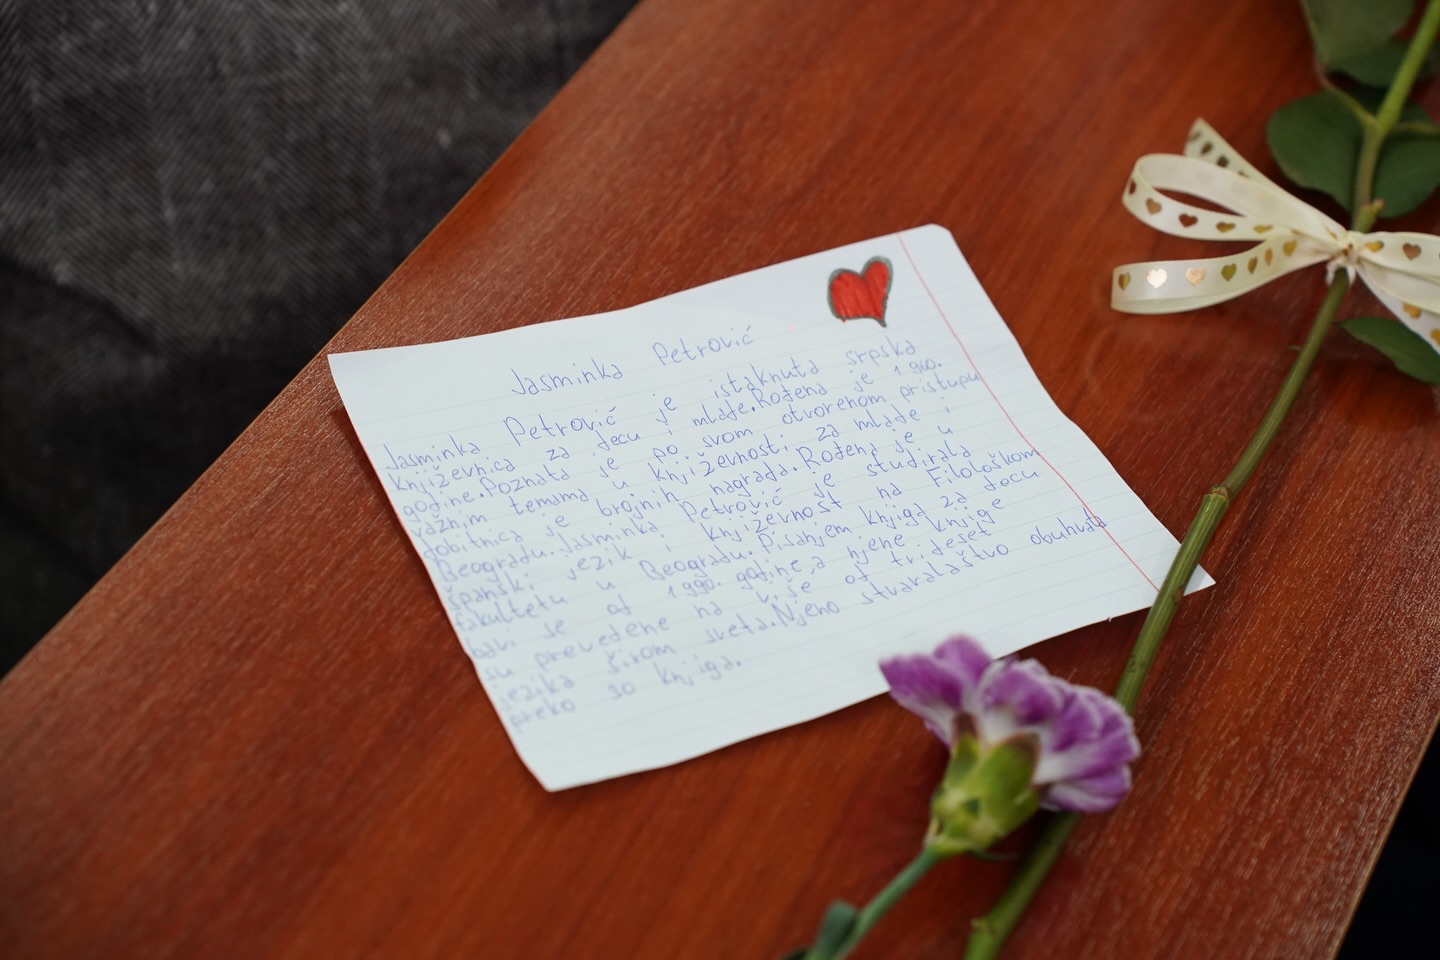 Jasminka Petrović
Jasminka Petrović je istaknuta srpska
književnica za decu i mlade.Rođena je 1960.
godine.Poznata je po svom otvorenom pristupu
važnim temama u književnosti za mlade i
dobitnica je brojnih nagrada.Rođena je u
Beogradu.Jasminka Petrović je studirala
španski jezik i književnost na Filološkom
fakultetu u Beogradu.Pisanjem knjiga za decu
bavi se od 1990. godine,a njene knjige
su prevedene na više od trideset
jezika širom sveta.Njeno stvaralaštvo obuhvata
preko 30 knjiga.